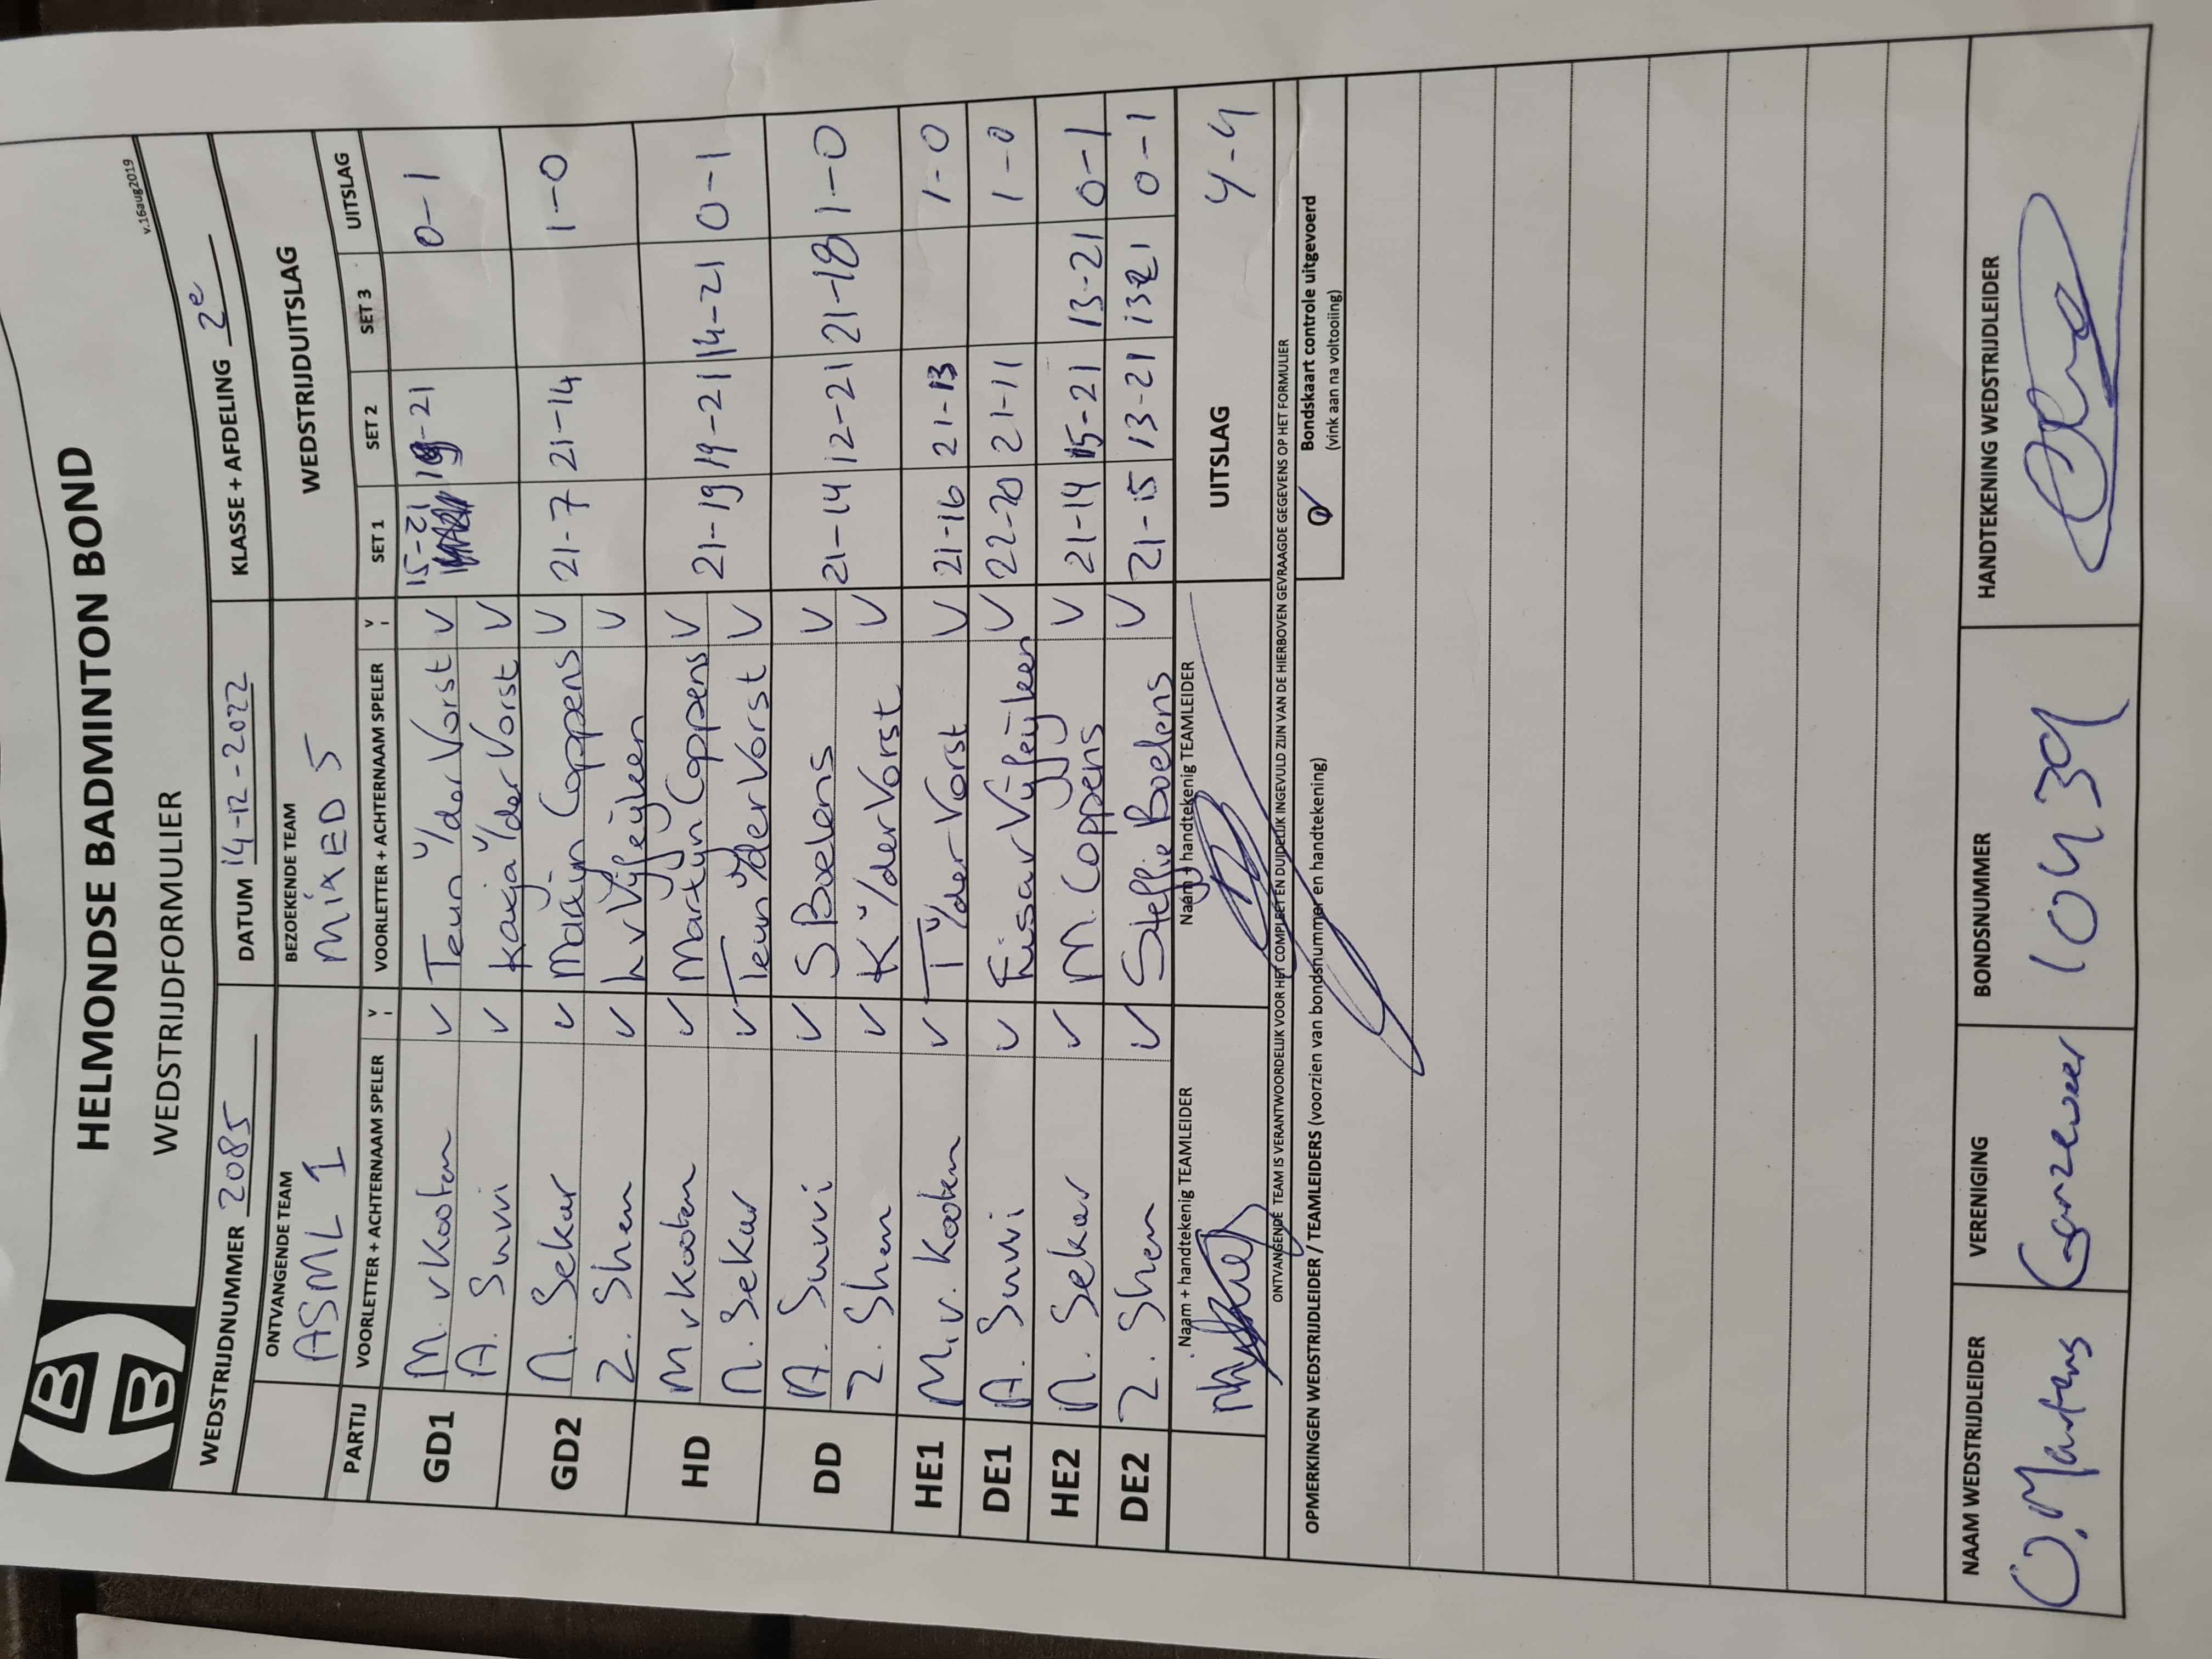 HELMONDSE BADMINTON BOND
WEDSTRIJDFORMULIER
v.16aug2019
WEDSTRIJDNUMMER 2085 DATUM 14-12-2022 KLASSE + AFDELING 2e
ONTVANGENDE TEAM BEZOEKENDE TEAM WEDSTRIJDUITSLAG
ASML 1 MIXED 5
PARTIJ VOORLETTER + ACHTERNAAM SPELER V VOORLETTER + ACHTERNAAM SPELER V SET 1 SET 2 SET 3 UITSLAG
GD1 M. vKooten V Teun v/der Vorst V 15-21 19-21 0-1
A. Survi V Katja v/der Vorst V
GD2 N. Sekar V Martijn Coppens V 21-7 21-14 1-0
Z. Shen V L v Vijfeijken V
HD M vKooten V Martijn Coppens V 21-19 19-21 14-21 0-1
N. Sekar V Teun v/der Vorst V
DD A. Survi V S Boelens V 21-14 12-21 21-18 1-0
Z. Shen V K v/der Vorst V
HE1 M.v. Kooten V T v/der Vorst V 21-16 21-13 1-0
DE1 A. Survi V Elisa v Vijfeijken V 22-20 21-11 1-0
HE2 N. Sekar V M. Coppens V 21-14 15-21 13-21 0-1
DE2 Z. Shen V Steffie Boelens V 21-15 13-21 13-21 0-1
Naam + handtekenig TEAMLEIDER Naam + handtekenig TEAMLEIDER UITSLAG 4-4
ONTVANGENDE TEAM IS VERANTWOORDELIJK VOOR HET COMPLEET EN DUIDELIJK INGEVULD ZIJN VAN DE HIERBOVEN GEVRAAGDE GEGEVENS OP HET FORMULIER
OPMERKINGEN WEDSTRIJDLEIDER / TEAMLEIDERS (voorzien van bondsnummer en handtekening) Bondskaart controle uitgevoerd
(vink aan na voltooiing)
NAAM WEDSTRIJDLEIDER VERENIGING BONDSNUMMER HANDTEKENING WEDSTRIJDLEIDER
O. Martens Ganzeveer 10439